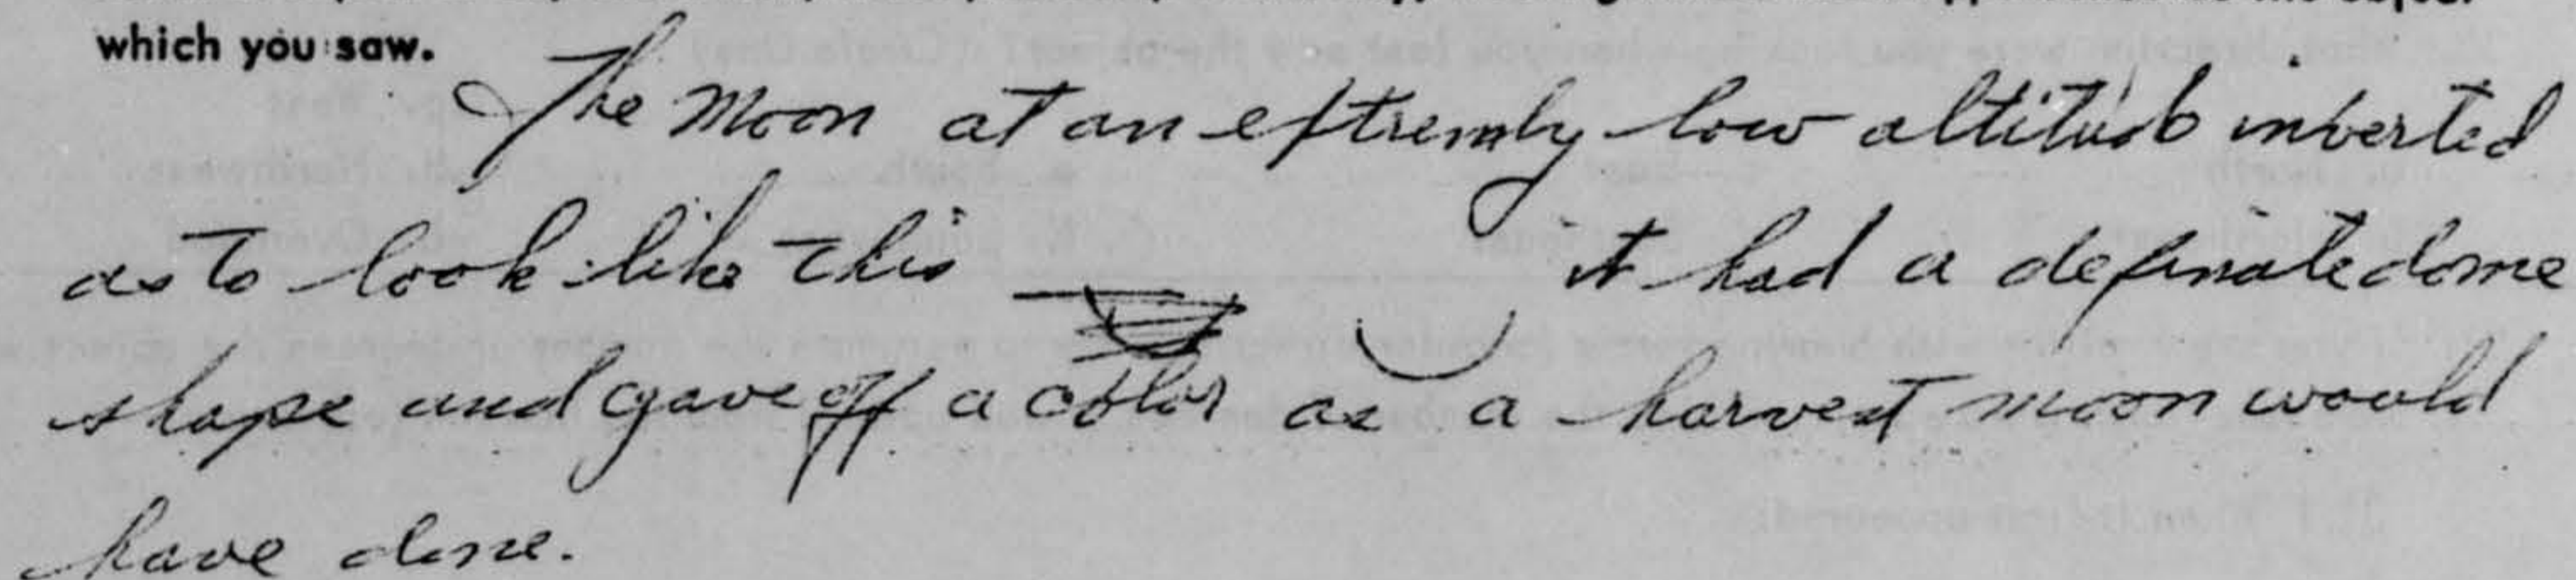 which you saw.
The Moon at an extremly low altitude inverted
as to look like this it had a definate dome
shape and gave off a color as a harvest moon would
have done.